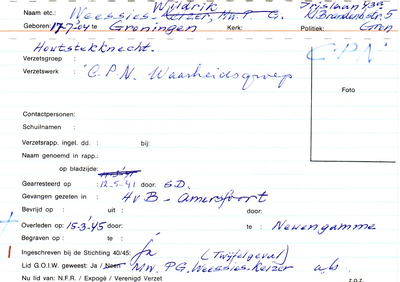 Wijldrik Irislaan 43a
Naam etc.: Weessies-Keizer, Mw. P. G. N. Brandenb.str. 5
Geboren: 17-7-'04 te Groningen Kerk: Politiek: Gron
Houtstekknecht. C.P.N.
Verzetsgroep :
Verzetswerk : C.P.N. Waarheidsgroep
Foto
Contactpersonen:
Schuilnamen :
Verzetsrapp. ingel. dd. : bij:
Naam genoemd in rapp.:
op bladzijde:
Gearresteerd op : 12-5-41 door: S.D.
Gevangen gezeten in : HvB - Amersfoort
Bevrijd op : uit : door:
Overleden op: 15-3-'45 door: te : Neuengamme
Begraven op : te :
Ingeschreven bij de Stichting 40/45: Ja (Twijfelgeval)
Lid G.O.I.W. geweest: Ja / Neen Mw. P.G. Weessies-Keizer a.b.
Nu lid van: N.F.R. / Expogé / Verenigd Verzet z.o.z.